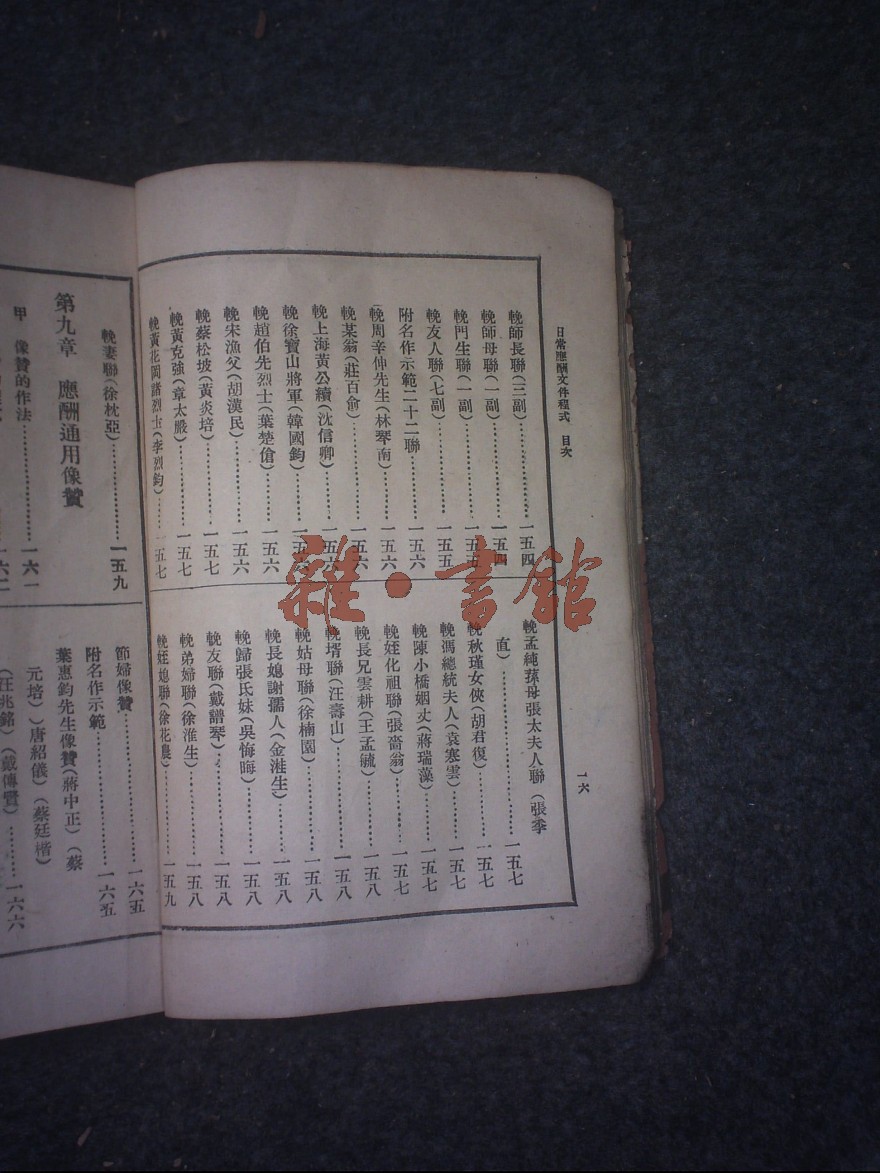 日常應酬文件程式　目次
輓師長聯(三副)………一五四
輓師母聯(一副)………一五四
輓門生聯(一副)………一五五
輓友人聯(七副)………一五五
附名作示範二十二聯………一五六
輓周辛仲先生(林琴南)………一五六
輓某翁(莊百俞)………一五六
輓上海黃公續(沈信卿)………一五六
輓徐寶山將軍(韓國鈞)………一五六
輓趙伯先烈士(葉楚傖)………一五六
輓宋漁父(胡漢民)………一五六
輓蔡松坡(黃炎培)………一五七
輓黃克強(章太嚴)………一五七
輓黃花岡諸烈士(李烈鈞)………一五七
輓孟純蓀母張太夫人聯(張季
直)………一五七
輓秋瑾女俠(胡君復)………一五七
輓馮總統夫人(袁寒雲)………一五七
輓陳小橋姻丈(蔣瑞藻)………一五七
輓姪化祖聯(張嗇翁)………一五七
輓長兄雲耕(王孟毓)………一五八
輓壻聯(汪壽山)………一五八
輓姑母聯(徐楠園)………一五八
輓長媳謝孺人(金溎生)………一五八
輓歸張氏妹(吳悔晦)………一五八
輓友聯(戴譜琴)………一五八
輓弟婦聯(徐淮生)………一五八
輓姪媳聯(徐花農)………一五九
一六
輓妻聯(徐枕亞)………一五九
第九章　應酬通用像贊
甲　像贊的作法………一六一
一六二
節婦像贊………一六五
附名作示範………一六五
葉惠鈞先生像贊(蔣中正)(蔡
元培)(唐紹儀)(蔡廷楷)
(汪兆銘)(戴傳賢)………一六六
雜·書館